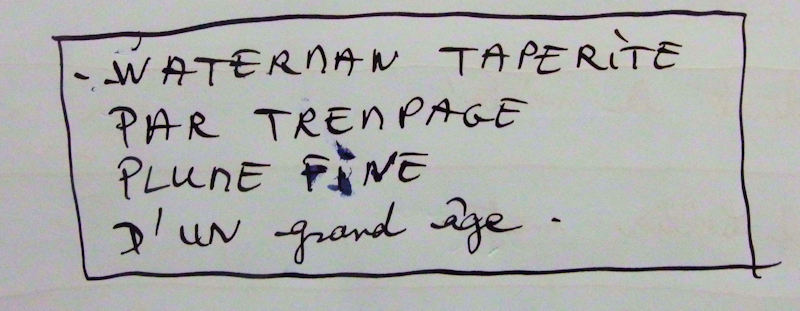 - WATERMAN TAPERITE
PAR TREMPAGE
PLUME FINE
D'UN grand âge.